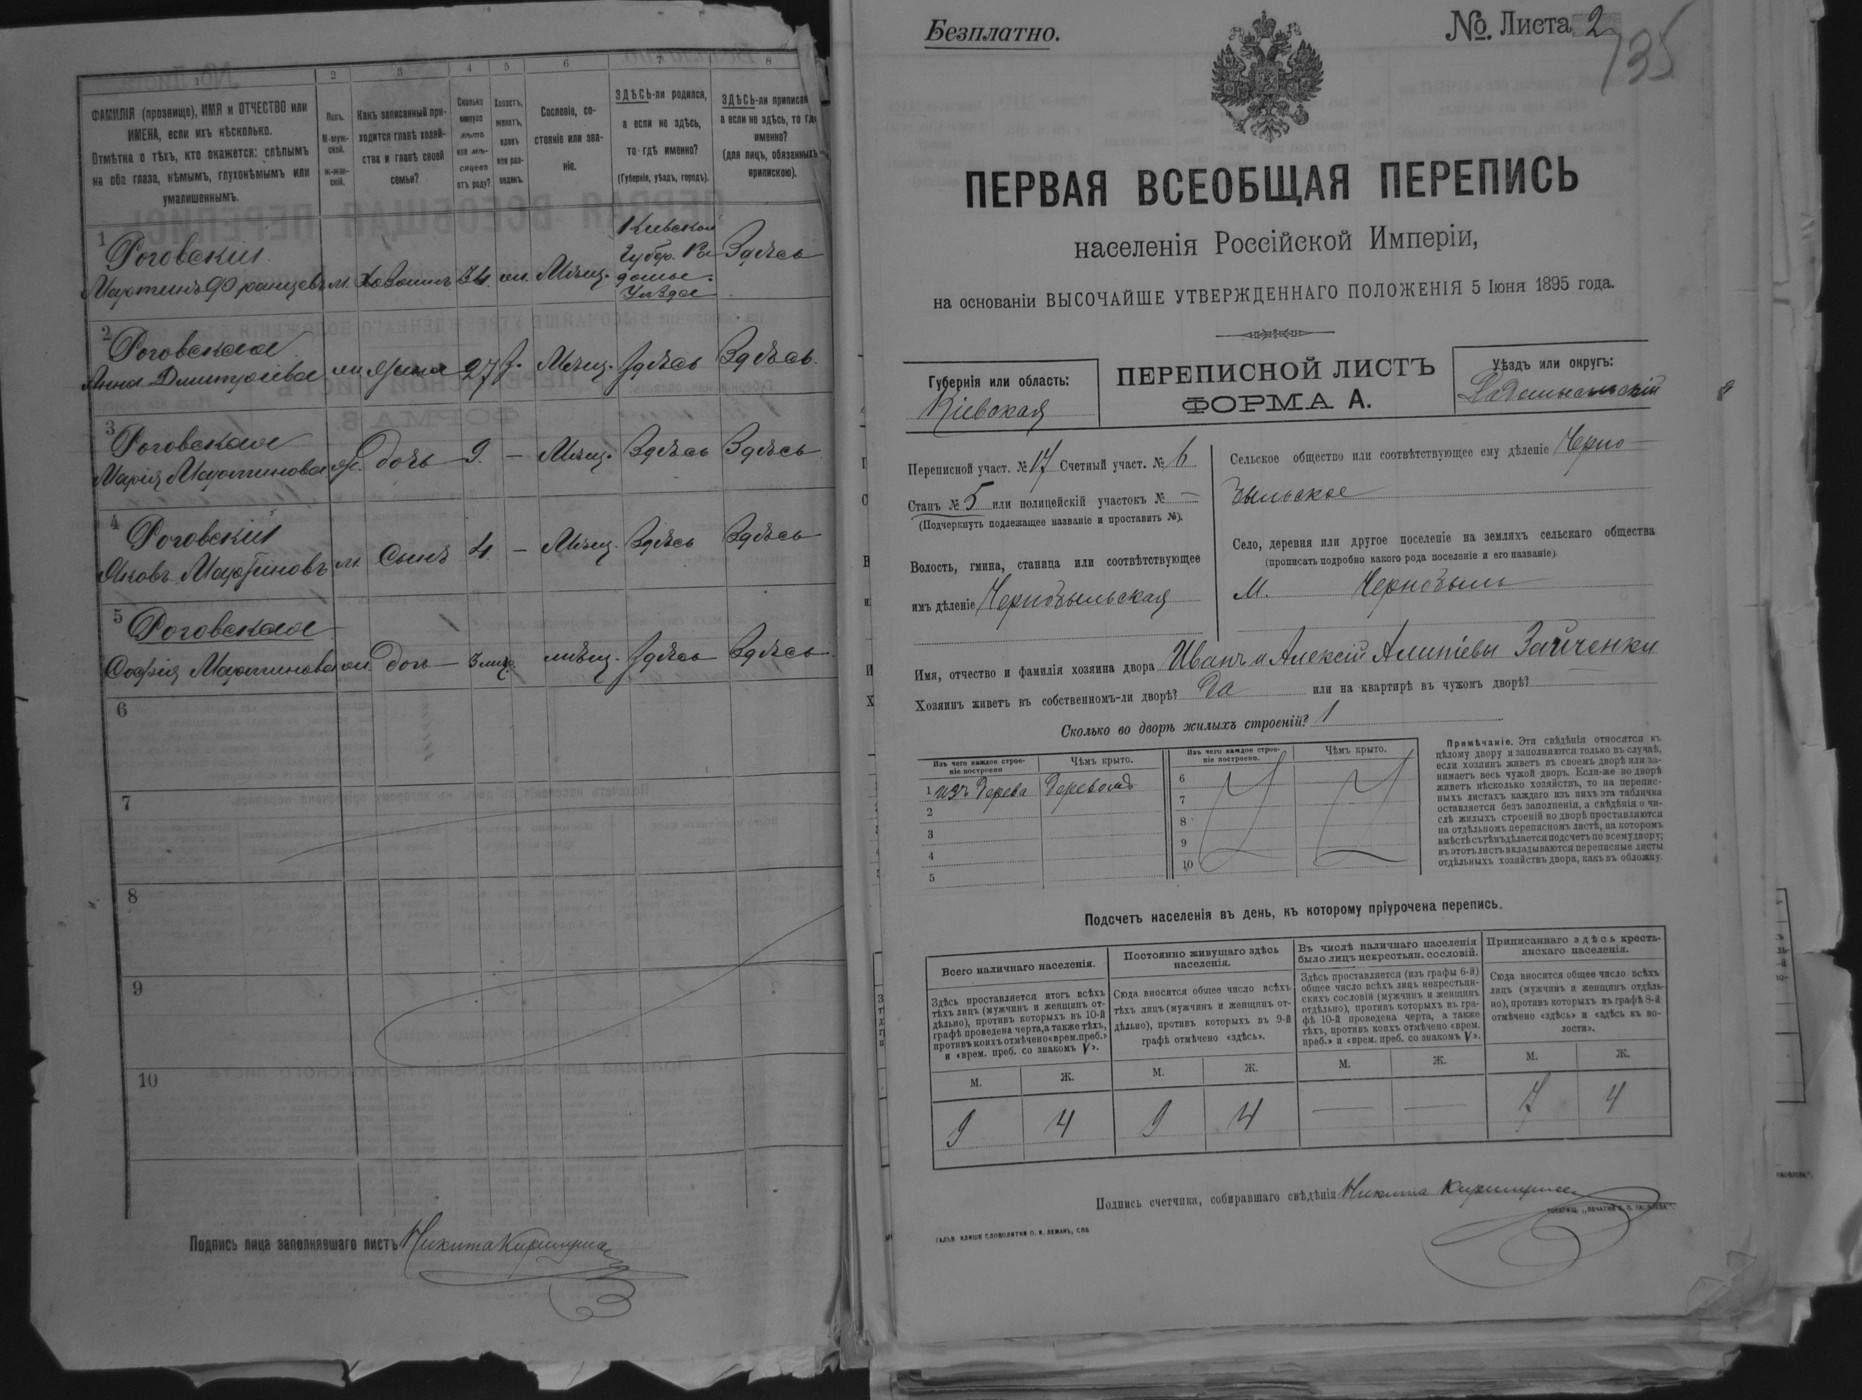 1
2
3
4
5
6
7
8
ФАМИЛІЯ (прозвище), ИМЯ и ОТЧЕСТВО или
ИМЕНА, если ихъ нѣсколько.
Отмѣтка о тѣхъ, кто окажется: слѣпымъ
на оба глаза, нѣмымъ, глухонѣмымъ или
умалишеннымъ.
Полъ.
М-муж-
ской.
Ж-жен-
скій.
Какъ записанный при-
ходится главѣ хозяй-
ства и главѣ своей
семьи?
Сколько
минуло
лѣтъ
или мѣ-
сяцевъ
отъ роду?
Холостъ,
женатъ,
вдовъ
или раз-
веденъ.
Сословіе, со-
стояніе или зва-
ніе.
ЗДѢСЬ-ли родился,
а если не здѣсь,
то гдѣ именно?
(Губернія, уѣздъ, городъ).
ЗДѢСЬ-ли приписан
а если не здѣсь, то гд
именно?
(для лицъ, обязанныхъ
припискою).
1 Роговскій
Мартинъ Францевъ м. Хозяинъ 34 Мѣщ. Кіевской Губер. Здѣсь
2 Роговская
Анна Дмитріева 27 Мѣщ. Здѣсь Здѣсь
3 Роговская
Марія Мартинова дочь 9. — Мѣщ. Здѣсь Здѣсь
4 Роговскій
Яковъ Мартиновъ м. Сынъ 4 — Мѣщ. Здѣсь Здѣсь
5 Роговская
Софія Мартинова дочь 3 мѣщ. Здѣсь Здѣсь
6
7
8
9
10
Подпись лица заполнявшаго листъ Никита
Безплатно.
№. Листа 2
135
ПЕРВАЯ ВСЕОБЩАЯ ПЕРЕПИСЬ
населенія Россійской Имперіи,
на основаніи ВЫСОЧАЙШЕ УТВЕРЖДЕННАГО ПОЛОЖЕНІЯ 5 Іюня 1895 года.
Губернія или область:
Кіевская
ПЕРЕПИСНОЙ ЛИСТЪ
ФОРМА А.
Уѣздъ или округъ:
Радомысльскій
Переписной участ. № 17 Счетный участ. № 6
Станъ № 5 или полицейскій участокъ № —
(Подчеркнуть подлежащее названіе и проставить №).
Волость, гмина, станица или соотвѣтствующее
имъ дѣленіе Чернобыльская
Сельское общество или соотвѣтствующее ему дѣленіе Черно-
быльское
Село, деревня или другое поселеніе на земляхъ сельскаго общества
(прописать подробно какого рода поселеніе и его названіе).
М. Чернобыль
Имя, отчество и фамилія хозяина двора Иванъ и Алексій Зайченки
Хозяинъ живетъ въ собственномъ-ли дворѣ? Да или на квартирѣ въ чужомъ дворѣ?
Сколько во дворѣ жилыхъ строеній? 1
Изъ чего каждое строе-
ніе построено
Чѣмъ крыто.
Изъ чего каждое строе-
ніе построено.
Чѣмъ крыто.
1 изъ дерева
2
3
4
5
6
7
8
9
10
Примѣчаніе. Эти свѣдѣнія относятся къ
цѣлому двору и заполняются только въ случаѣ,
если хозяинъ живетъ въ своемъ дворѣ или за-
нимаетъ весь чужой дворъ. Если-же во дворѣ
живетъ нѣсколько хозяйствъ, то на перепис-
ныхъ листахъ каждаго изъ нихъ эта табличка
оставляется безъ заполненія, а свѣдѣнія о чи-
слѣ жилыхъ строеній во дворѣ проставляются
на отдѣльномъ переписномъ листѣ, на которомъ
вмѣстѣ съ тѣмъ дѣлается подсчетъ по всему двору;
въ этотъ листъ вкладываются переписные листы
отдѣльныхъ хозяйствъ двора, какъ въ обложку.
Подсчетъ населенія въ день, къ которому пріурочена перепись.
Всего наличнаго населенія.
Постоянно живущаго здѣсь
населенія.
Въ числѣ наличнаго населенія
было лицъ некрестьян. сословій.
Приписаннаго здѣсь кресть-
янскаго населенія.
Здѣсь проставляется итогъ всѣхъ
тѣхъ лицъ (мужчин и женщин от-
дѣльно), противъ которыхъ въ 10-й
графѣ проведена черта, а также тѣхъ,
противъ коихъ отмѣчено «врем. преб.»
и «врем. преб. со знакомъ V».
Сюда вносится общее число всѣхъ
тѣхъ лицъ (мужчин и женщин от-
дѣльно), противъ которыхъ въ 9-й
графѣ отмѣчено «здѣсь».
Здѣсь проставляется (изъ графы 6-й)
общее число всѣхъ лицъ некрестьян-
скихъ сословій (мужчин и женщин
отдѣльно), противъ которыхъ въ гра-
фѣ 10-й проведена черта, а также
тѣхъ, противъ коихъ отмѣчено «врем.
преб.» и «врем. преб. со знакомъ V».
Сюда вносится общее число всѣхъ
лицъ (мужчин и женщин отдѣль-
но), противъ которыхъ въ графѣ 8-й
отмѣчено «здѣсь» и «здѣсь въ во-
лости».
М. Ж. М. Ж. М. Ж. М. Ж.
9 4 9 4 — — 7 4
Подпись счетчика, собиравшаго свѣдѣнія Никита